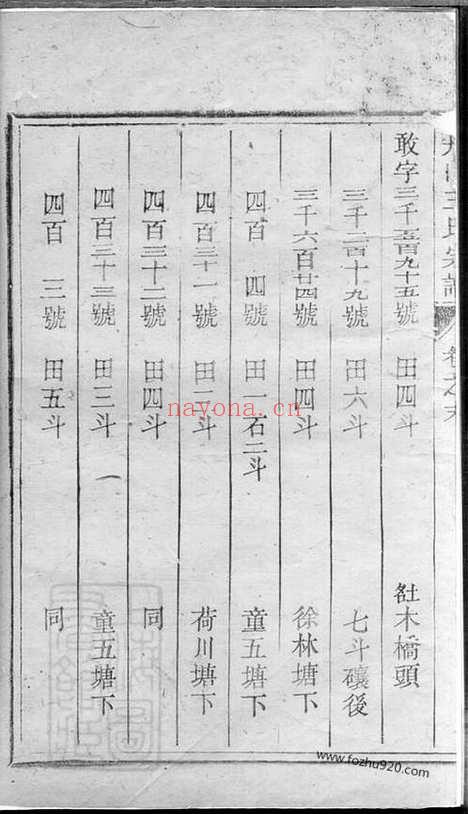 王氏宗譜
敢字三千五百九十五號 田四斗 社木橋頭
三千二百十九號 田六斗 七斗礦後
三千六百廿四號 田四斗 徐林塘下
四百四號 田一石二斗 童五塘下
四百三十一號 田三斗 荷川塘下
四百三十二號 田四斗 同
四百三十三號 田三斗 童五塘下
四百三號 田五斗 同
nayona.cn
www.fozhu920.com